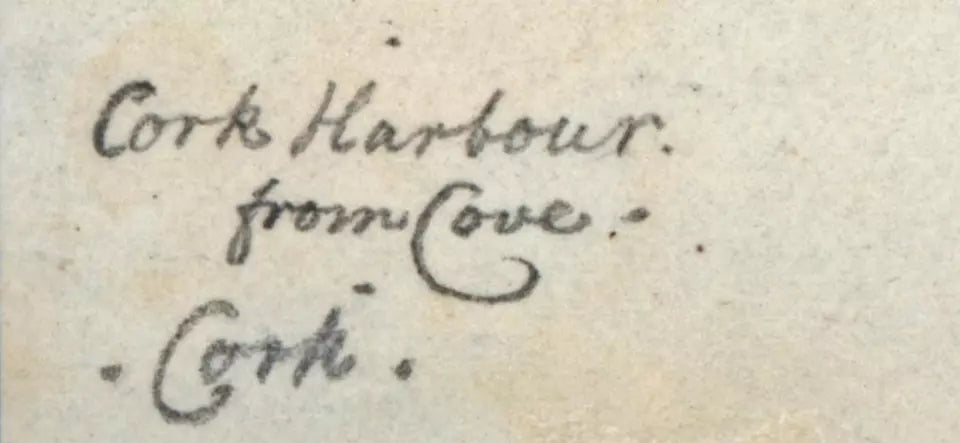 Cork Harbour.
from Cove.
. Cork .